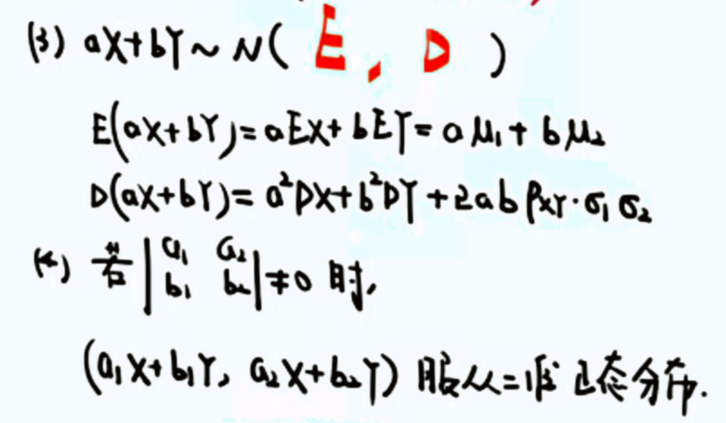 (3) aX+bY~N( E, D )
E(aX+bY)=aEX+bEY=aμ₁+bμ₂
D(aX+bY)=a²DX+b²DY+2abρxy·σ₁σ₂
(4) 若|a₁ a₂|≠0时,
|b₁ b₂|
(a₁X+b₁Y, a₂X+b₂Y)服从二维正态分布.